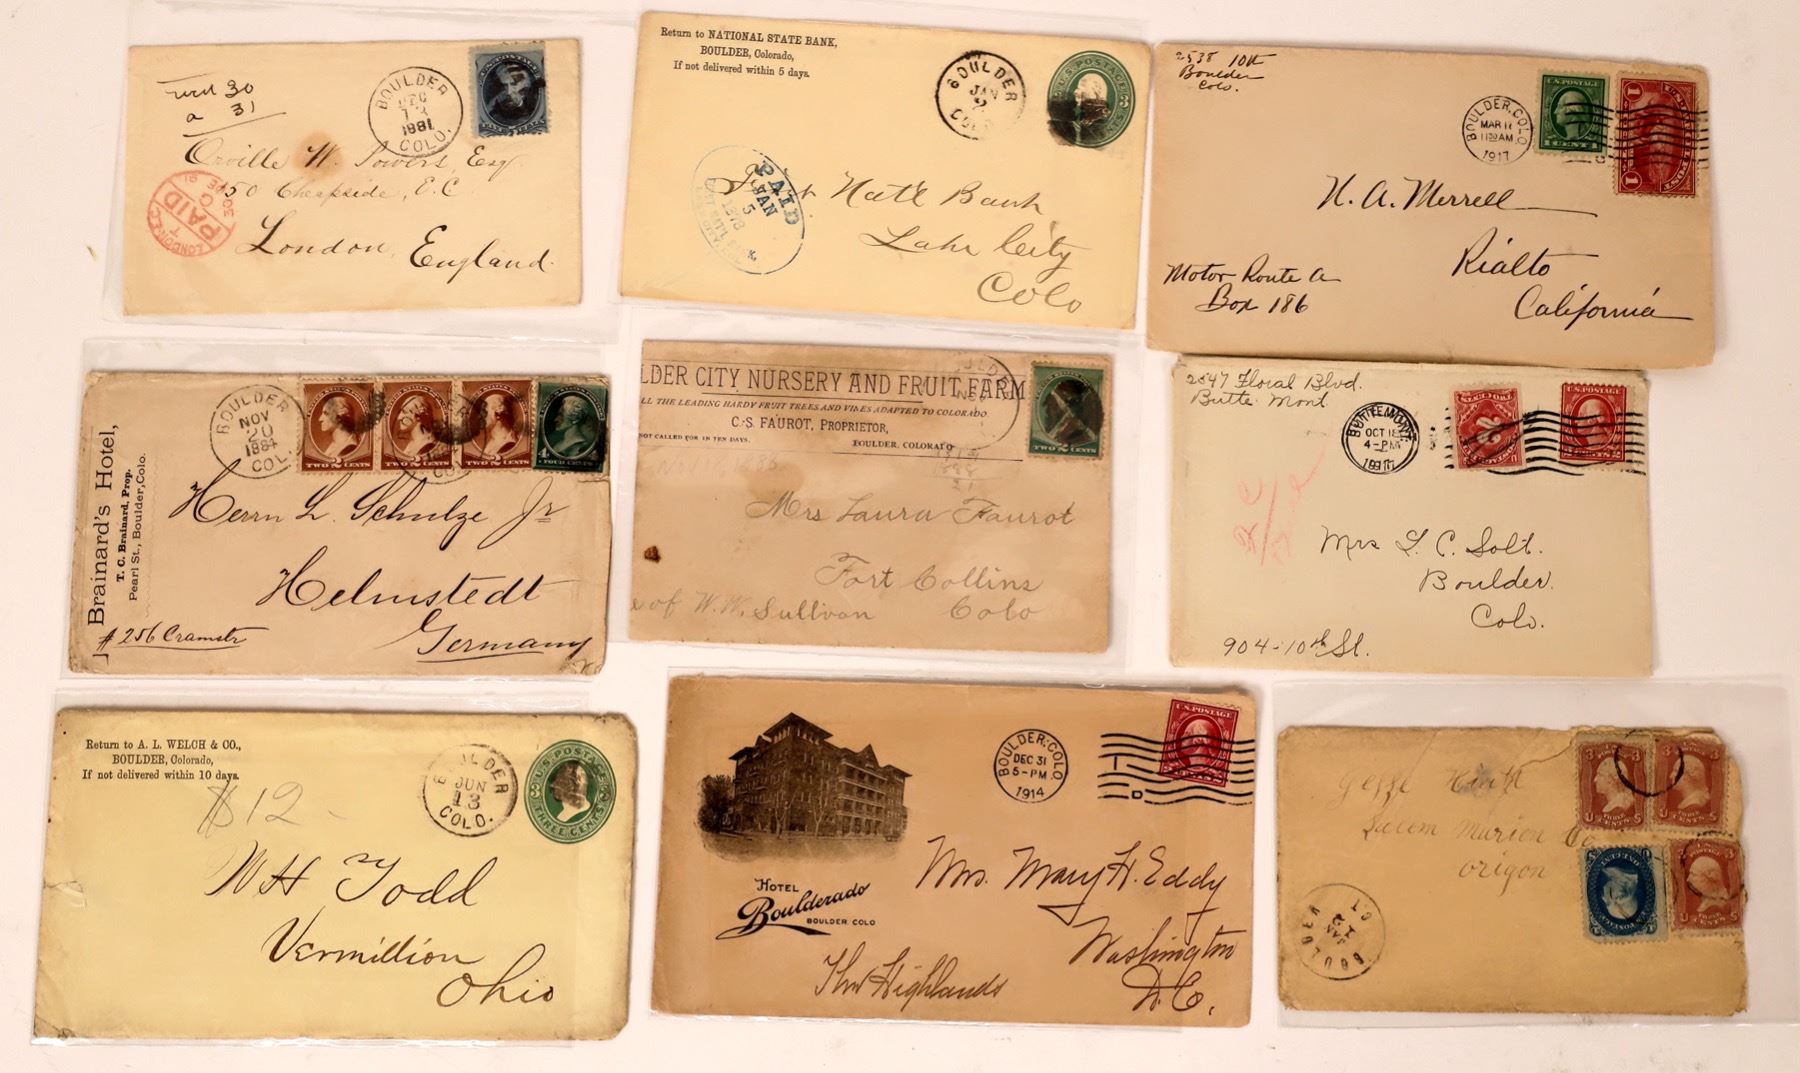 30
a 31
BOULDER
DEC
1881
COL.
Orville W. Powers, Esq
150 Cheapside, E.C
London, England
LONDON E.C
PAID
Return to NATIONAL STATE BANK,
BOULDER, Colorado,
If not delivered within 5 days.
BOULDER
JAN
2
COLO
U.S. POSTAGE
3
PAID
JAN
5
1878
First Nat'l Bank
Lake City
Colo
2538 10th
Boulder
Colo.
BOULDER, COLO.
MAR 17
11 30 AM
1917
U.S. POSTAGE
1 CENT 1
1 1
N. A. Merrell
Rialto
California
Motor Route A
Box 186
Brainard's Hotel,
T. C. Brainard, Prop.
Pearl St., Boulder, Colo.
BOULDER
NOV
20
1884
COL.
TWO 2 CENTS
TWO 2 CENTS
TWO 2 CENTS
4
FOUR CENTS
Herrn L. Schulze Jr
Helmstedt
Germany
# 256 Cramstr
LDER CITY NURSERY AND FRUIT FARM
LL THE LEADING HARDY FRUIT TREES AND VINES ADAPTED TO COLORADO.
C. S. FAUROT, PROPRIETOR,
NOT CALLED FOR IN TEN DAYS. BOULDER, COLORADO
TWO 2 CENTS
Nov 18, 1888
Mrs Laura Faurot
Fort Collins
e of W. W. Sullivan Colo
2547 Floral Blvd.
Butte Mont.
BUTTE, MONT.
OCT 18
4-PM
1917
U.S. POSTAGE
2 CENTS 2
2c
Due
Mrs L. C. Solt.
Boulder.
Colo.
904-10th St.
Return to A. L. WELCH & CO.,
BOULDER, Colorado,
If not delivered within 10 days.
BOULDER
JUN
13
COLO.
U.S. POSTAGE
THREE CENTS
$12-
W H Todd
Vermillion
Ohio
BOULDER, COLO.
DEC 31
5-PM
1914
U.S. POSTAGE
HOTEL
Boulderado
BOULDER, COLO
Mrs. Mary H. Eddy
Washington
D.C.
The Highlands
3 3
3
U THREE CENTS S
U THREE CENTS S
3
U THREE CENTS S
Salem Marion Co
Origon
BOULDER
JAN